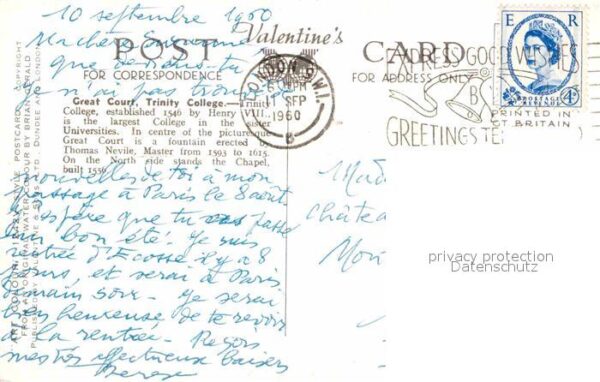 10 septembre 1960
Ma chère
POST
Valentine's
CARD
que deviens-tu
FOR CORRESPONDENCE
FOR ADDRESS ONLY
je n'ai pas trouvé
Great Court, Trinity College.—Trinity
College, established 1546 by Henry VIII.
is the largest College in the sister
Universities. In centre of the picturesque
Great Court is a fountain erected by
Thomas Nevile, Master from 1593 to 1615.
On the North side stands the Chapel,
built 1556.
nouvelles de toi à mon
passage à Paris le 8 août.
J'espère que tu as passé
un bon été. Je suis
rentrée d'Ecosse il y a 8
jours, et serai à Paris
demain soir. Je serai
bien heureuse de te revoir
à la rentrée. Reçois
mes très affectueux baisers
LONDON S.W.1.
PM
11 SEP
1960
8
GOOD WISHES
BY
GREETINGS TE
PRINTED IN
GT BRITAIN
E R
POSTAGE
REVENUE
4D
Mad
château
Mon
privacy protection
Datenschutz
ART COLOUR
POST CARD
COPYRIGHT
FROM AN ORIGINAL WATER COLOUR BY BRIAN GERALD
PUBLISHED BY VALENTINE & SONS LTD., DUNDEE AND LONDON